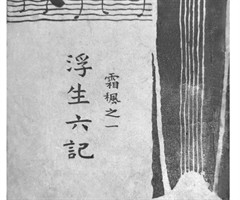 浮生六記
霜楓之一